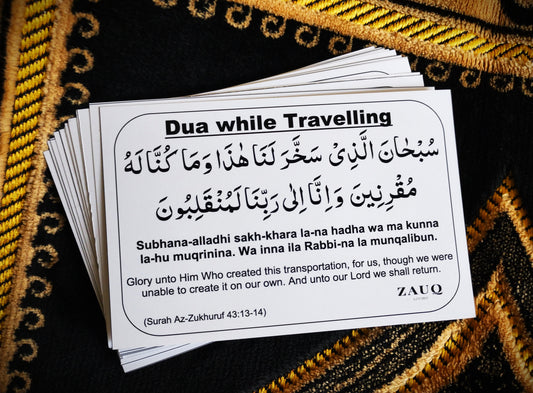 Dua while Travelling
سُبْحَانَ الَّذِىْ سَخَّرَ لَنَا هٰذَا وَمَا كُنَّا لَهُ
مُقْرِنِينَ وَاِنَّا اِلٰى رَبِّنَا لَمُنْقَلِبُونَ
Subhana-alladhi sakh-khara la-na hadha wa ma kunna
la-hu muqrinina. Wa inna ila Rabbi-na la munqalibun.
Glory unto Him Who created this transportation, for us, though we were
unable to create it on our own. And unto our Lord we shall return.
ZAUQ
(Surah Az-Zukhuruf 43:13-14)